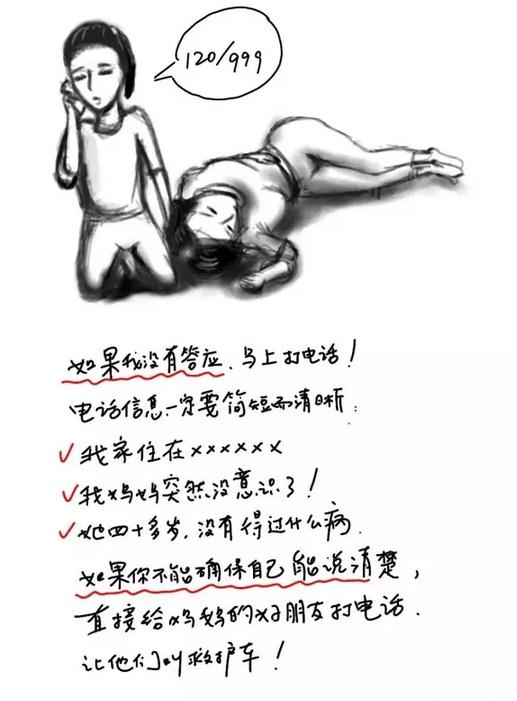 120/999
如果我没有答应、马上打电话!
电话信息一定要简短而清晰:
✓我家住在××××××
✓我妈妈突然没意识了!
✓她四十多岁,没有得过什么病.
如果你不能确保自己能说清楚,
直接给妈妈的好朋友打电话.
让他们叫救护车!